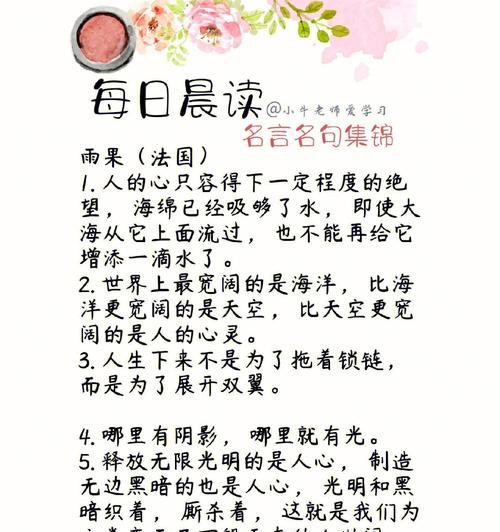 每日晨读
@小牛老师爱学习
名言名句集锦
雨果（法国）
1.人的心只容得下一定程度的绝
望，海绵已经吸够了水，即使大
海从它上面流过，也不能再给它
增添一滴水了。
2.世界上最宽阔的是海洋，比海
洋更宽阔的是天空，比天空更宽
阔的是人的心灵。
3.人生下来不是为了拖着锁链，
而是为了展开双翼。
4.哪里有阴影，哪里就有光。
5.释放无限光明的是人心，制造
无边黑暗的也是人心，光明和黑
暗织着，厮杀着，这就是我们为